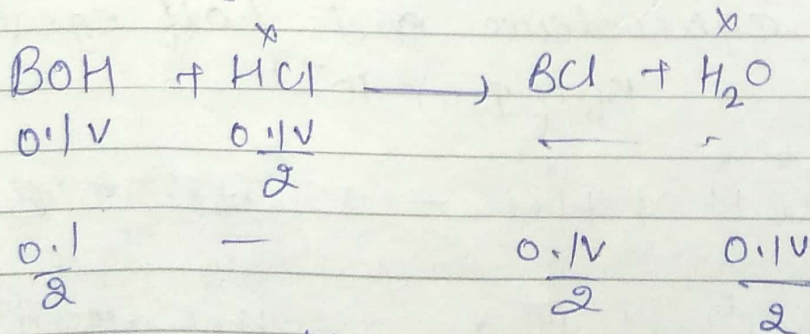 x x
BOH + HCl ⟶ BCl + H₂O
0.1V 0.1V/2 — -
0.1/2 — 0.1V/2 0.1V/2